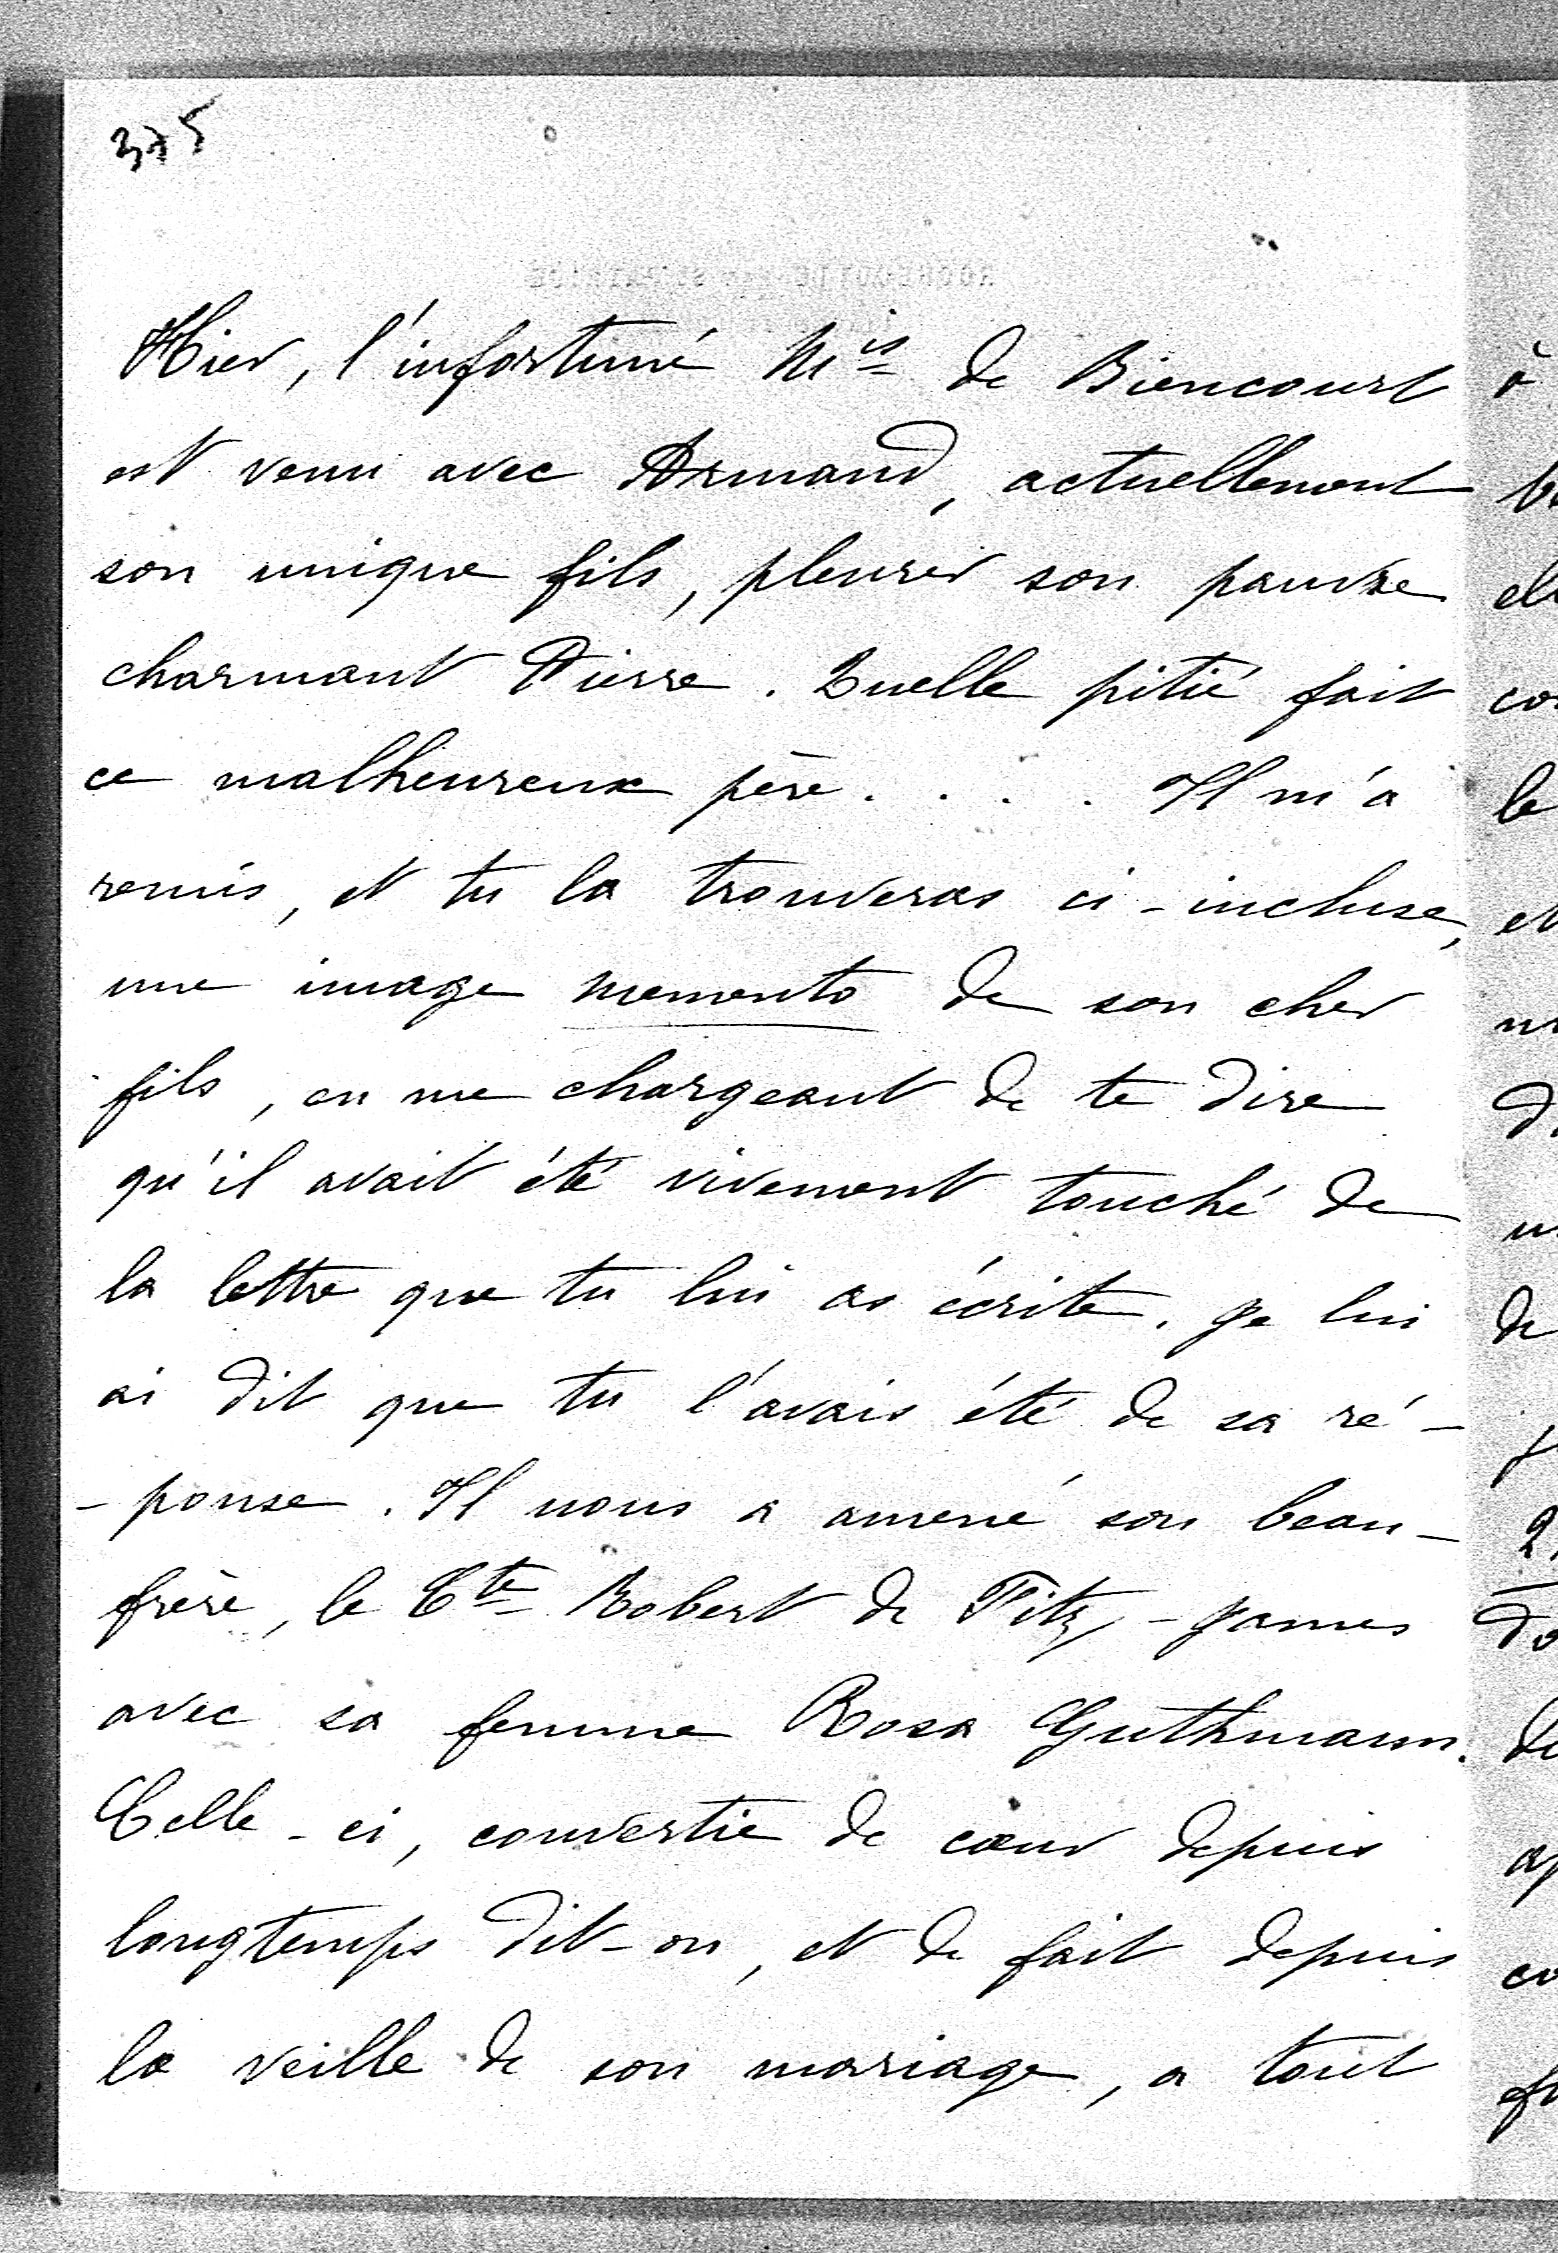 375
Hier, l'infortuné Mis de Biencourt
est venu avec Armand, actuellement
son unique fils, pleurer son pauvre
charmant Pierre. Quelle pitié fait
ce malheureux père. . . . Il m'a
remis, et tu la trouveras ci-incluse,
une image memento de son cher
fils, en me chargeant de te dire
qu'il avait été vivement touché de
la lettre que tu lui as écrite. Je lui
ai dit que tu l'avais été de sa ré-
-ponse. Il nous a amené son beau-
frère, le Cte Robert de Fitz-James
avec sa femme Rosa Guthmann.
Celle-ci, convertie de cœur depuis
longtemps dit-on, et de fait depuis
la veille de son mariage, a tout